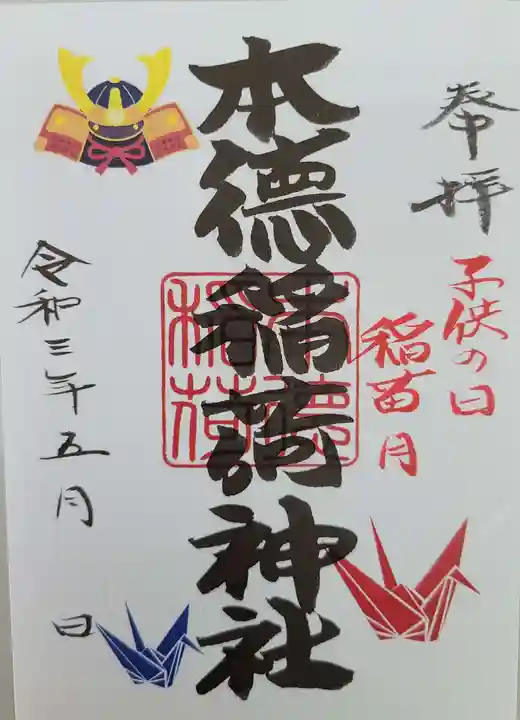 奉拝
子供の日
稲苗月
本德稲荷神社
本德稲荷
令和三年五月 日